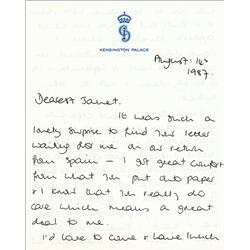 KENSINGTON PALACE
August: 14th
1987.
Dearest Janet.
It was such a
lovely surprise to find her letter
waiting for me on our return
from Spain – I got great comfort
from what her put onto paper
& I know that her really do
care which means a great
deal to me.
I'd love to come & have lunch